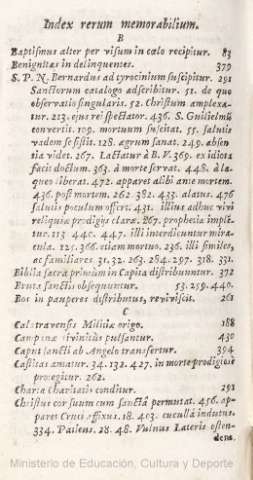 Index rerum memorabilium.
B
Baptismus alter per visum in cœlo recipitur. 83
Benignitas in delinquentes. 379
S. P. N. Bernardus ad tyrocinium suscipitur. 291
Sanctorum catalogo adscribitur. 51. de quo
observatio singularis. 52. Christum amplexa-
tur. 213. ejus respectator. 436. S. Guilielmũ
convertit. 109. mortuum suscitat. 55. salutis
vadem se sistit. 128. ægrum sanat. 249. absen
tia videt. 267. Lactatur à B. V. 369. ex idiota
facit doctum. 363. à morte servat. 448. à la-
queo liberat. 472. apparet alibi ante mortem.
436. post mortem. 262. 382. 433. alatus. 476
salutis poculum offert. 431. illius adhuc vivi
reliquiæ prodigijs claræ. 267. prophetia imple-
tur. 113. 440. 447. illi interdicuntur mira-
cula. 125. 366. etiam mortuo. 236. illi similes,
ac familiares. 31. 32. 263. 284. 297. 318. 331.
Biblia sacra primùm in Capita distribuuntur. 372
Bruta sanctis obsequuntur. 53. 259. 440.
Bos in pauperes distributus, reviviscit. 261
C
Calatravensis Militiæ origo. 188
Campanæ divinitùs pulsantur. 430
Caput sancti ab Angelo transfertur. 394
Castitas amatur. 34. 132. 427. in morte prodigiosè
protegitur. 262.
Charta Charitatis conditur. 291
Christus cor suum cum sanctâ permutat. 456. ap-
paret Cruci affixus. 18. 403. cucullâ indutus.
334. Patiens. 28. 48. Vulnus Lateris osten-
dens.
Ministerio de Educación, Cultura y Deporte